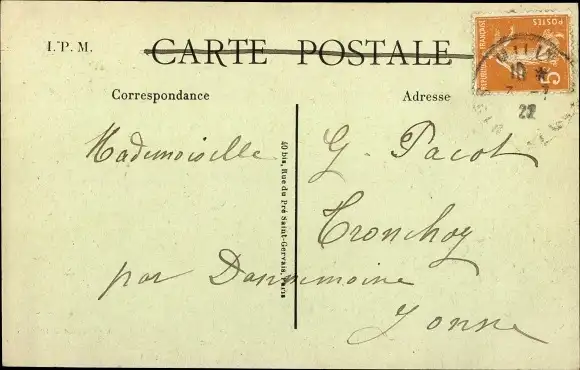 I. P. M.
CARTE POSTALE
Correspondance
Adresse
Mademoiselle G. Pacot
Tronchoy
par Dannemoine
Yonne
40 bis, Rue du Pré Saint-Gervais, Paris
POSTES
5
10 *
7 -7
22